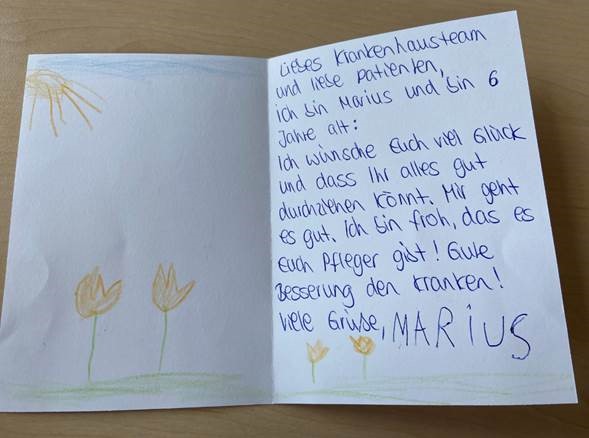 Liebes Krankenhausteam
und liebe Patienten,
ich bin Marius und bin 6
Jahre alt:
Ich wünsche Euch viel Glück
und dass Ihr alles gut
durchziehen könnt. Mir geht
es gut. Ich bin froh, das es
Euch Pfleger gibt! Gute
Besserung den Kranken!
Viele Grüße, MARiUS